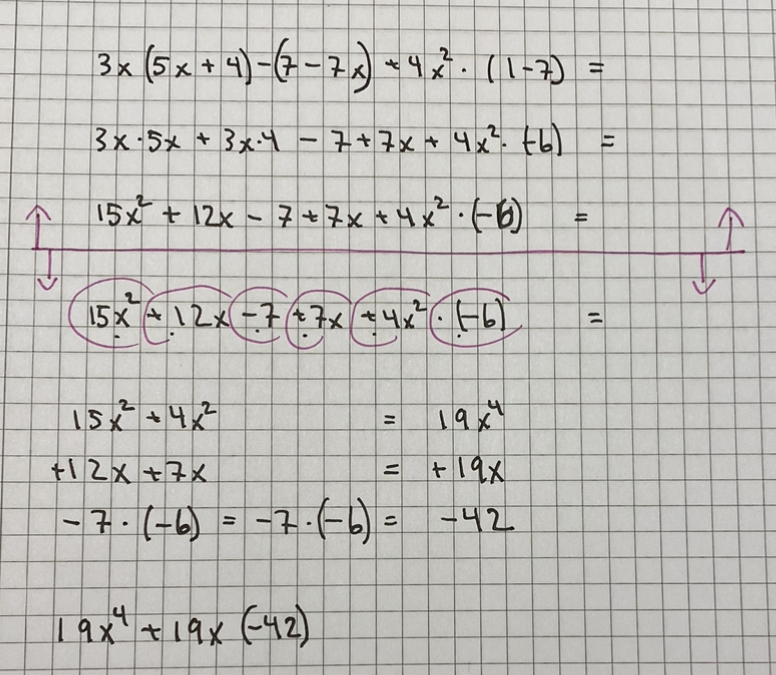 3x (5x + 4) - (7 - 7x) + 4x² · (1 - 7) =
3x · 5x + 3x · 4 - 7 + 7x + 4x² · (-6) =
15x² + 12x - 7 + 7x + 4x² · (-6) =
15x² + 12x - 7 + 7x + 4x² · (-6) =
15x² + 4x² = 19x⁴
+12x + 7x = +19x
-7 · (-6) = -7 · (-6) = -42
19x⁴ + 19x (-42)